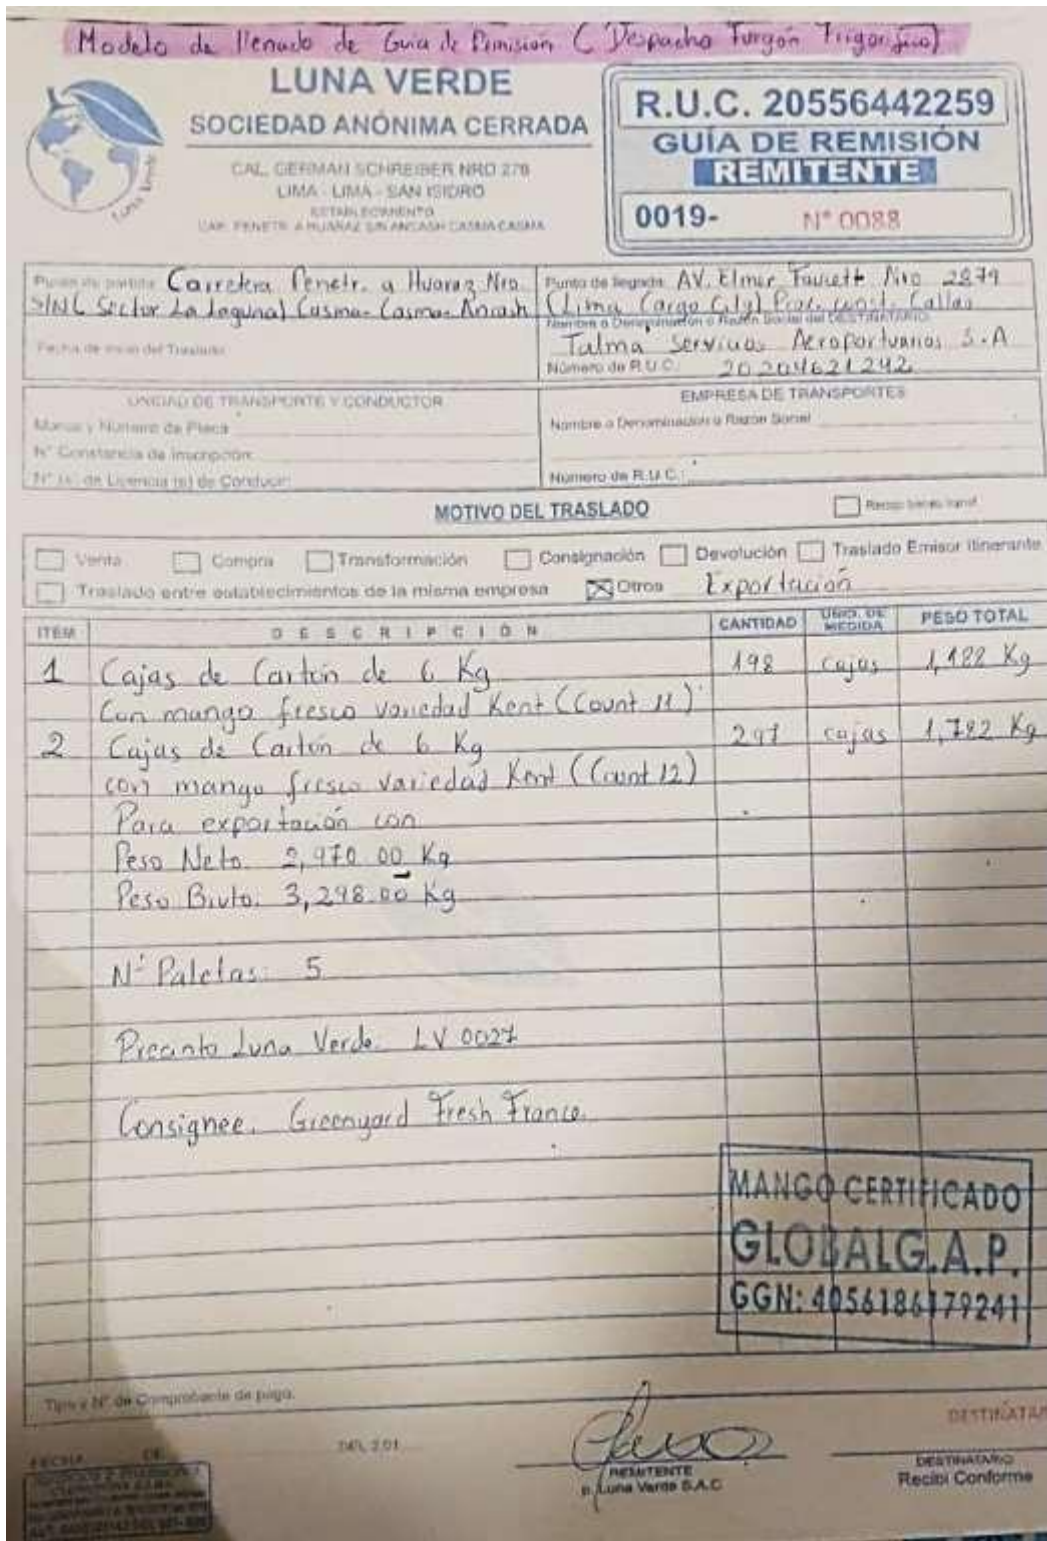 Modelo de llenado de Guia de Remisión ( Despacho Furgón Frigorífico)
LUNA VERDE
SOCIEDAD ANÓNIMA CERRADA
CAL. GERMAN SCHREIBER NRO 276
LIMA - LIMA - SAN ISIDRO
ESTABLECIMIENTO
CAR. PENETR. A HUARAZ S/N ANCASH CASMA CASMA
Luna Verde
R.U.C. 20556442259
GUÍA DE REMISIÓN
REMITENTE
0019- N° 0088
Punto de partida: Carretera Penetr. a Huaraz Nro
S/N( Sector La Laguna) Casma- Casma- Ancash
Fecha de inicio del Traslado:
Punto de llegada: AV. Elmer Faucett Nro 2879
(Lima Cargo City) Prov. Const. Callao
Nombre o Denominación o Razón Social del DESTINATARIO:
Talma Servicios Aeroportuarios S.A
Número de R.U.C.: 20204621242
UNIDAD DE TRANSPORTE Y CONDUCTOR
Marca y Número de Placa
N° Constancia de Inscripción:
N° (s) de Licencia (s) de Conducir:
EMPRESA DE TRANSPORTES
Nombre o Denominación o Razón Social
Número de R.U.C.:
MOTIVO DEL TRASLADO
Venta Compra Transformación Consignación Devolución Traslado Emisor Itinerante
Traslado entre establecimientos de la misma empresa Otros Exportación
ITEM DESCRIPCIÓN CANTIDAD UNID. DE MEDIDA PESO TOTAL
1 Cajas de Cartón de 6 Kg 198 cajas 1,188 Kg
Con mango fresco variedad Kent (Count 11)
2 Cajas de Cartón de 6 Kg 297 cajas 1,782 Kg
con mango fresco variedad Kent (Count 12)
Para exportación con
Peso Neto. 2,970.00 Kg
Peso Bruto. 3,298.00 Kg
N° Paletas: 5
Precinto Luna Verde. LV 0027
Consignee. Greenyard Fresh France.
MANGO CERTIFICADO
GLOBALG.A.P.
GGN: 4056186179241
Tipo y N° de Comprobante de pago.
FECHA DE DEL 201
REMITENTE
p. Luna Verde S.A.C
DESTINATAR
DESTINATARIO
Recibí Conforme